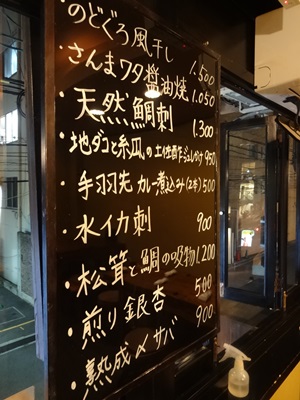 ・のどぐろ風干し 1.500
・さんまワタ醤油焼 1.050
・天然鯛刺 1.300
・地ダコと糸瓜の土佐酢ジュレかけ 950
・手羽先カレー煮込み(2本) 500
・水イカ刺 900
・松茸と鯛の吸物 1.200
・煎り銀杏 500
・熟成〆サバ 900